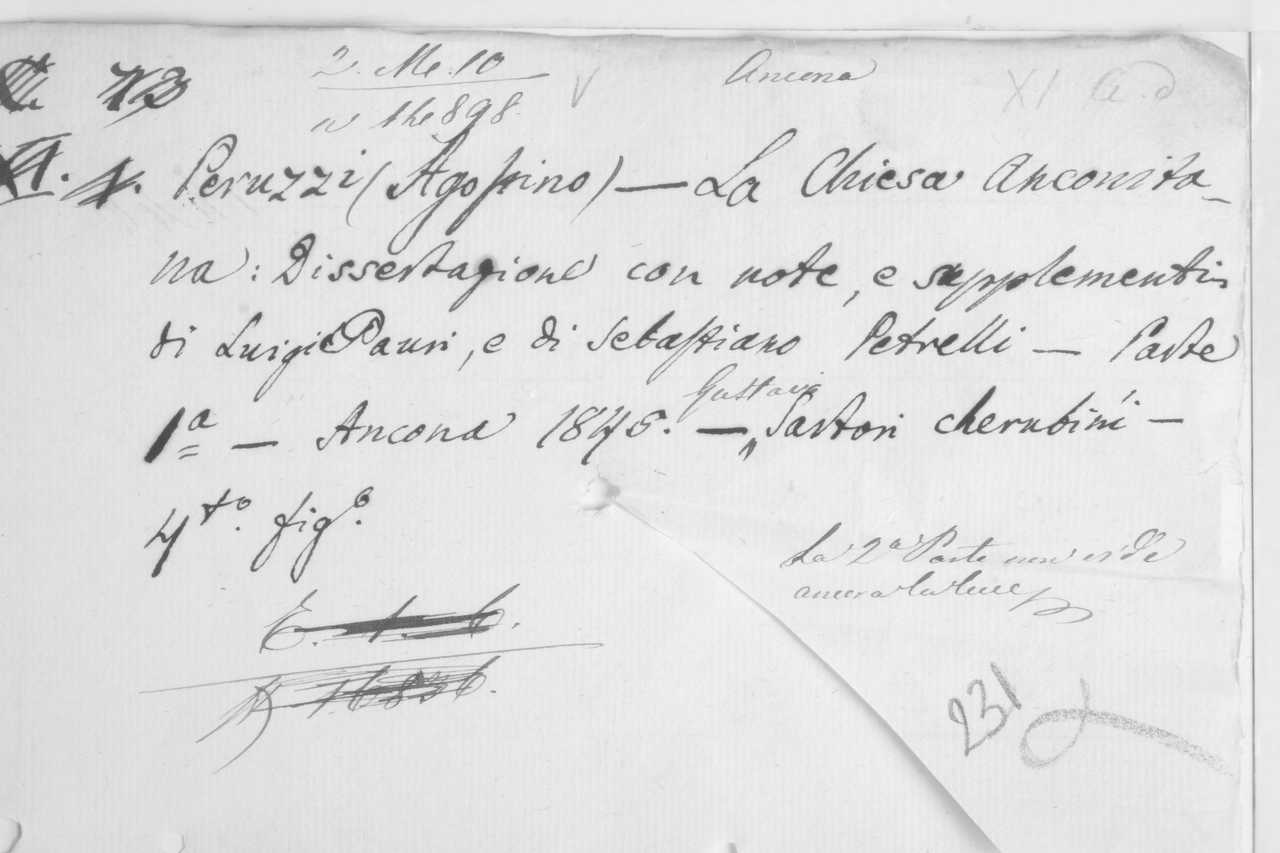 2. Me. 10
Ancona
XI a.d
n 16898.
Peruzzi (Agostino) — La Chiesa Anconita-
na: Dissertazione con note, e supplementi
di Luigi Pauri, e di Sebastiano Petrelli — Parte
1ª — Ancona 1845. — Gustavo Sartori cherubini —
4to. figo.
La 2ª Parte non vide
ancora la luce
E. 1. 6.
231